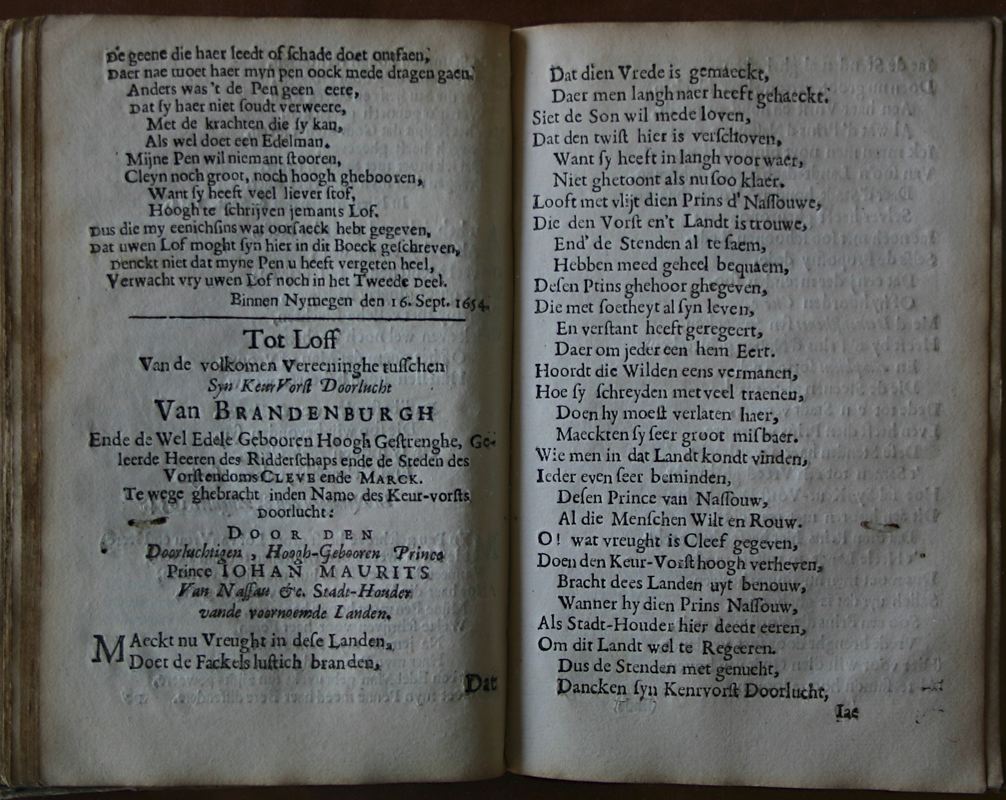 De geene die haer leedt of schade doet ontfaen,
Daer nae moet haer myn pen oock mede dragen gaen.
Anders was't de Pen geen eere,
Dat sy haer niet soudt verweere,
Met de krachten die sy kan,
Als wel doet een Edelman.
Mijne Pen wil niemant stooren,
Cleyn noch groot, noch hoogh ghebooren,
Want sy heeft veel liever stof,
Hoogh te schrijven jemants Lof.
Dus die my eenichsins wat oorsaeck hebt gegeven,
Dat uwen Lof moght syn hier in dit Boeck geschreven,
Denckt niet dat myne Pen u heeft vergeten heel,
Verwacht vry uwen Lof noch in het Tweede Deel.
Binnen Nymegen den 16. Sept. 1654.
Tot Loff
Van de volkomen Vereeninghe tusschen
Syn KeurVorst Doorlucht
Van BRANDENBURGH
Ende de Wel Edele Gebooren Hoogh Gestrenghe, Ge-
leerde Heeren des Ridderschaps ende de Steden des
Vorstendoms CLEVE ende MARCK.
Te wege ghebracht inden Name des Keur-vorsts
Doorlucht:
DOOR DEN
Doorluchtigen, Hoogh-Gebooren Prince
Prince IOHAN MAURITS
Van Nassau &c. Stadt-Houder
vande voornoemde Landen.
MAeckt nu Vreught in dese Landen,
Doet de Fackels lustich branden,
Dat
Dat dien Vrede is gemaeckt,
Daer men langh naer heeft gehaeckt.
Siet de Son wil mede loven,
Dat den twist hier is verschoven,
Want sy heeft in langh voor waer,
Niet ghetoont als nu soo klaer.
Looft met vlijt dien Prins d'Nassouwe,
Die den Vorst en't Landt is trouwe,
End' de Stenden al te saem,
Hebben meed geheel bequaem,
Desen Prins ghehoor ghegeven,
Die met soetheyt al syn leven,
En verstant heeft geregeert,
Daer om jeder een hem Eert.
Hoordt die Wilden eens vermanen,
Hoe sy schreyden met veel traenen,
Doen hy moest verlaten haer,
Maeckten sy seer groot misbaer.
Wie men in dat Landt kondt vinden,
Ieder even seer beminden,
Desen Prince van Nassouw,
Al die Menschen Wilt en Rouw.
O! wat vreught is Cleef gegeven,
Doen den Keur-Vorst hoogh verheven,
Bracht dees Landen uyt benouw,
Wanner hy dien Prins Nassouw,
Als Stadt-Houder hier deedt eeren,
Om dit Landt wel te Regeeren.
Dus de Stenden met genucht,
Dancken syn Kenrvorst Doorlucht,
Iae